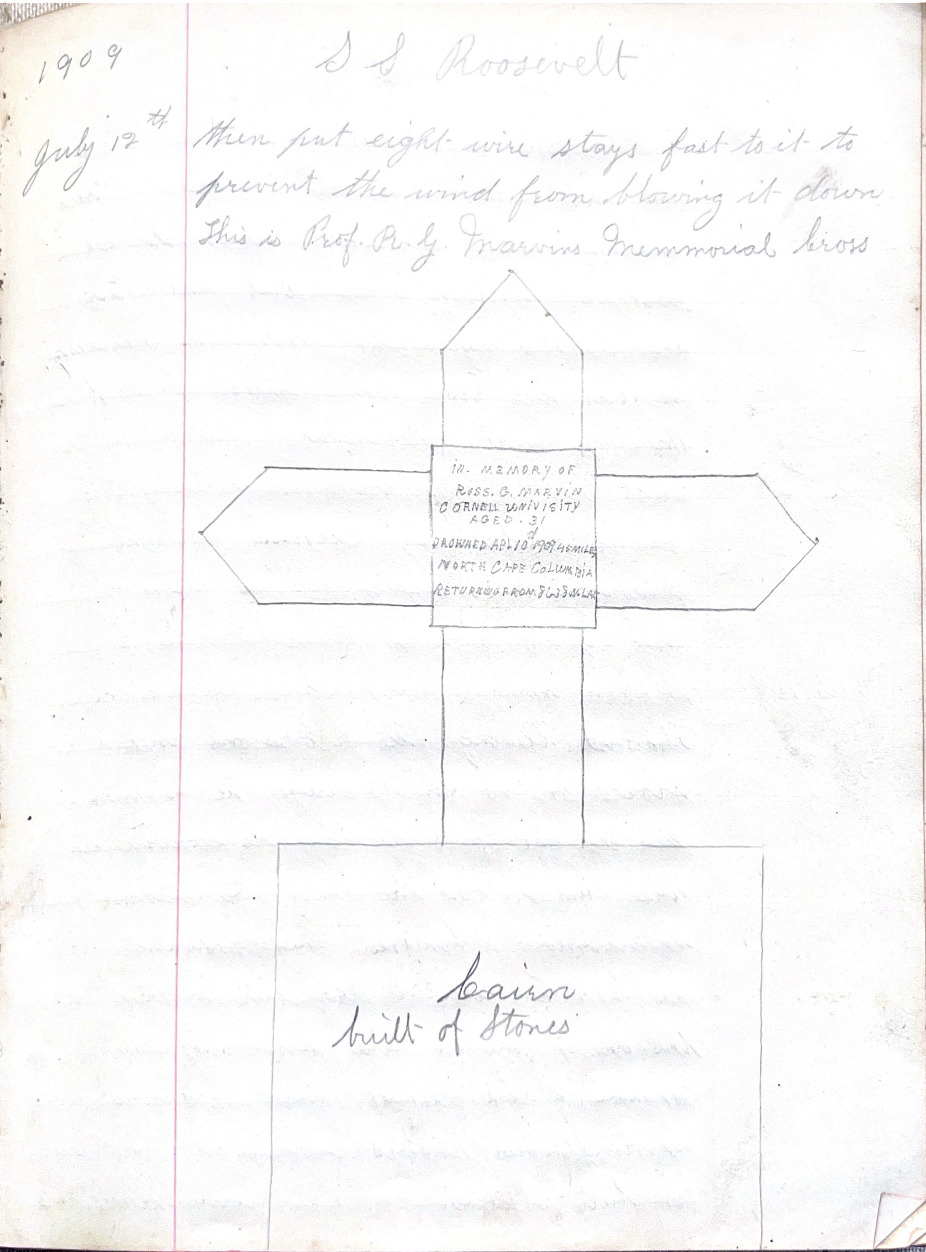 1909
S S Roosevelt
July 12th
then put eight wire stays fast to it to
prevent the wind from blowing it down
This is Prof. R. G. Marvins Memmorial Cross
IN. MEMORY OF
ROSS. G. MARVIN
CORNELL UNIVISITY
AGED. 31
DROWNED APL 10th 1909 45 MILES
NORTH CAPE COLUMBIA
RETURNING FROM 86.38 N. LAT
Cairn
built of Stones